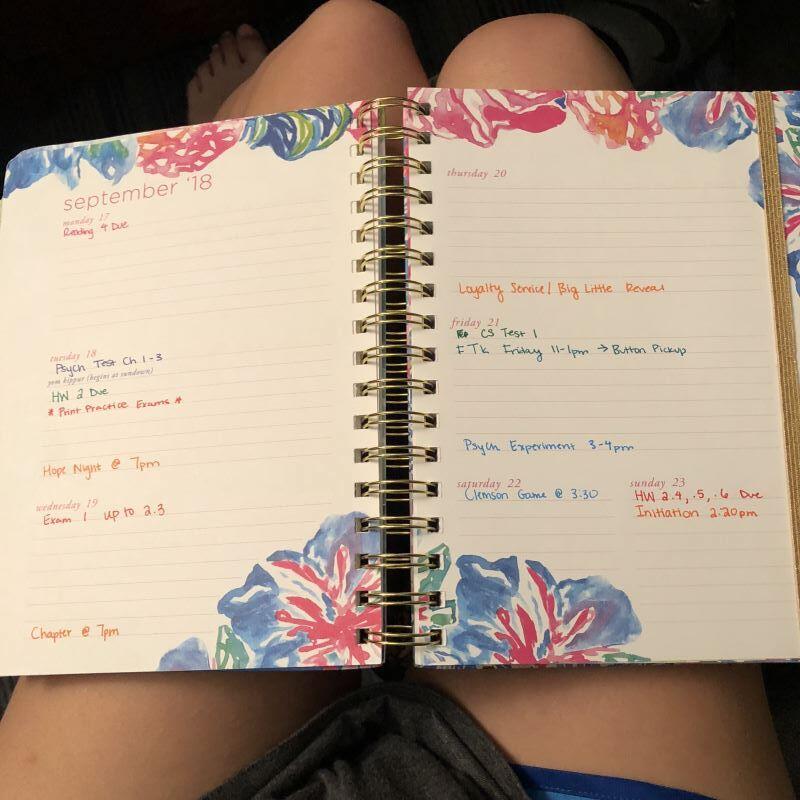 september '18
monday 17
Reading 4 Due
tuesday 18
Psych Test Ch 1-3
yom kippur (begins at sundown)
HW 2 Due
* Print Practice Exams *
Hope Night @ 7pm
wednesday 19
Exam 1 up to 2.3
Chapter @ 7pm
thursday 20
Loyalty Service/ Big Little Reveal
friday 21
CS Test 1
FTK Friday 11-1pm → Button Pickup
Psych Experiment 3-4pm
saturday 22
Clemson Game @ 3:30
sunday 23
HW 2.4, .5, .6 Due
Initiation 2:20pm